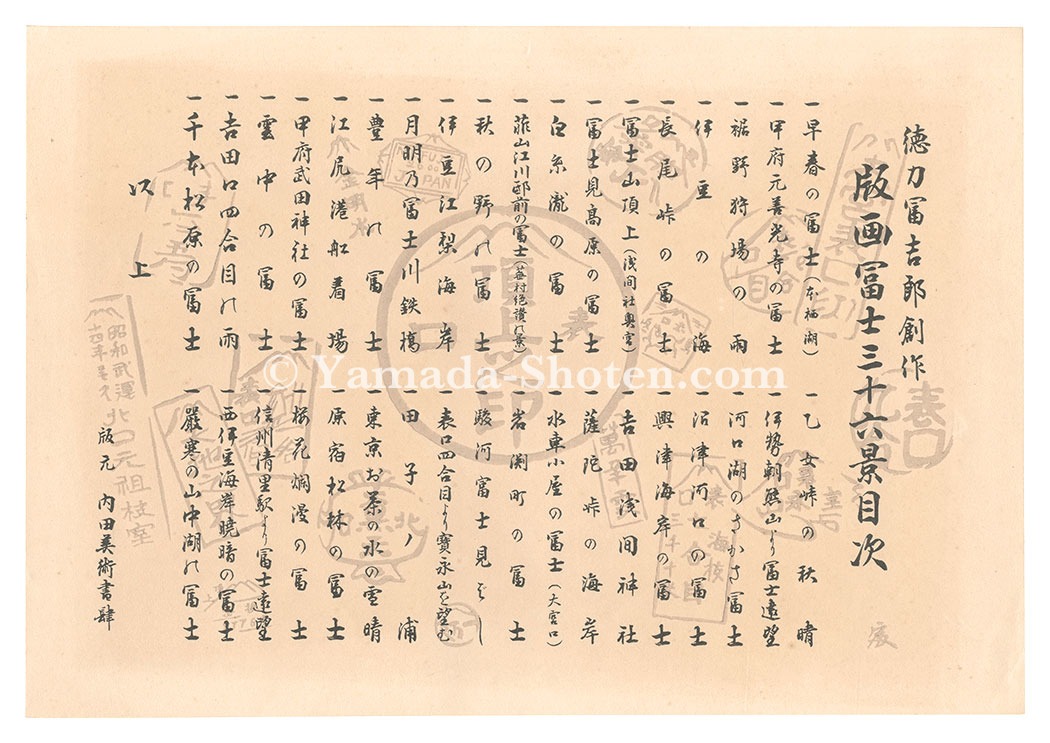 徳力冨吉郎創作
版画冨士三十六景目次
一早春の冨士(本栖湖)
一甲府元善光寺の冨士
一裾野狩場の雨
一伊豆の海
一長尾峠の冨士
一冨士山頂上(浅間社奥宮)
一冨士見高原の冨士
一白糸瀧の冨士
一韮山江川邸前の冨士(蕪村絶讃の景)
一秋の野の冨士
一伊豆江梨海岸
一月明乃冨士川鉄橋
一豊年の冨士
一江尻港船着場
一甲府武田神社の冨士
一雲中の冨士
一吉田口四合目の雨
一千本松原の冨士
一乙女峠の秋晴
一伊勢朝熊山より冨士遠望
一河口湖のさかさ冨士
一沼津河口の冨士
一興津海岸の冨士
一吉田浅間神社
一薩陀峠の海岸
一水車小屋の冨士(大宮口)
一岩渕町の冨士
一駿河冨士見はし
一表口四合目より寶永山を望む
一田子ノ浦
一東京お茶の水の雪晴
一原宿松林の冨士
一桜花爛漫の冨士
一信州清里駅より冨士遠望
一西伊豆海岸暁暗の冨士
一厳寒の山中湖の冨士
以上
版元 内田美術書肆
頂上
印
表
口
JAPAN
北口元祖室
© Yamada-Shoten.com